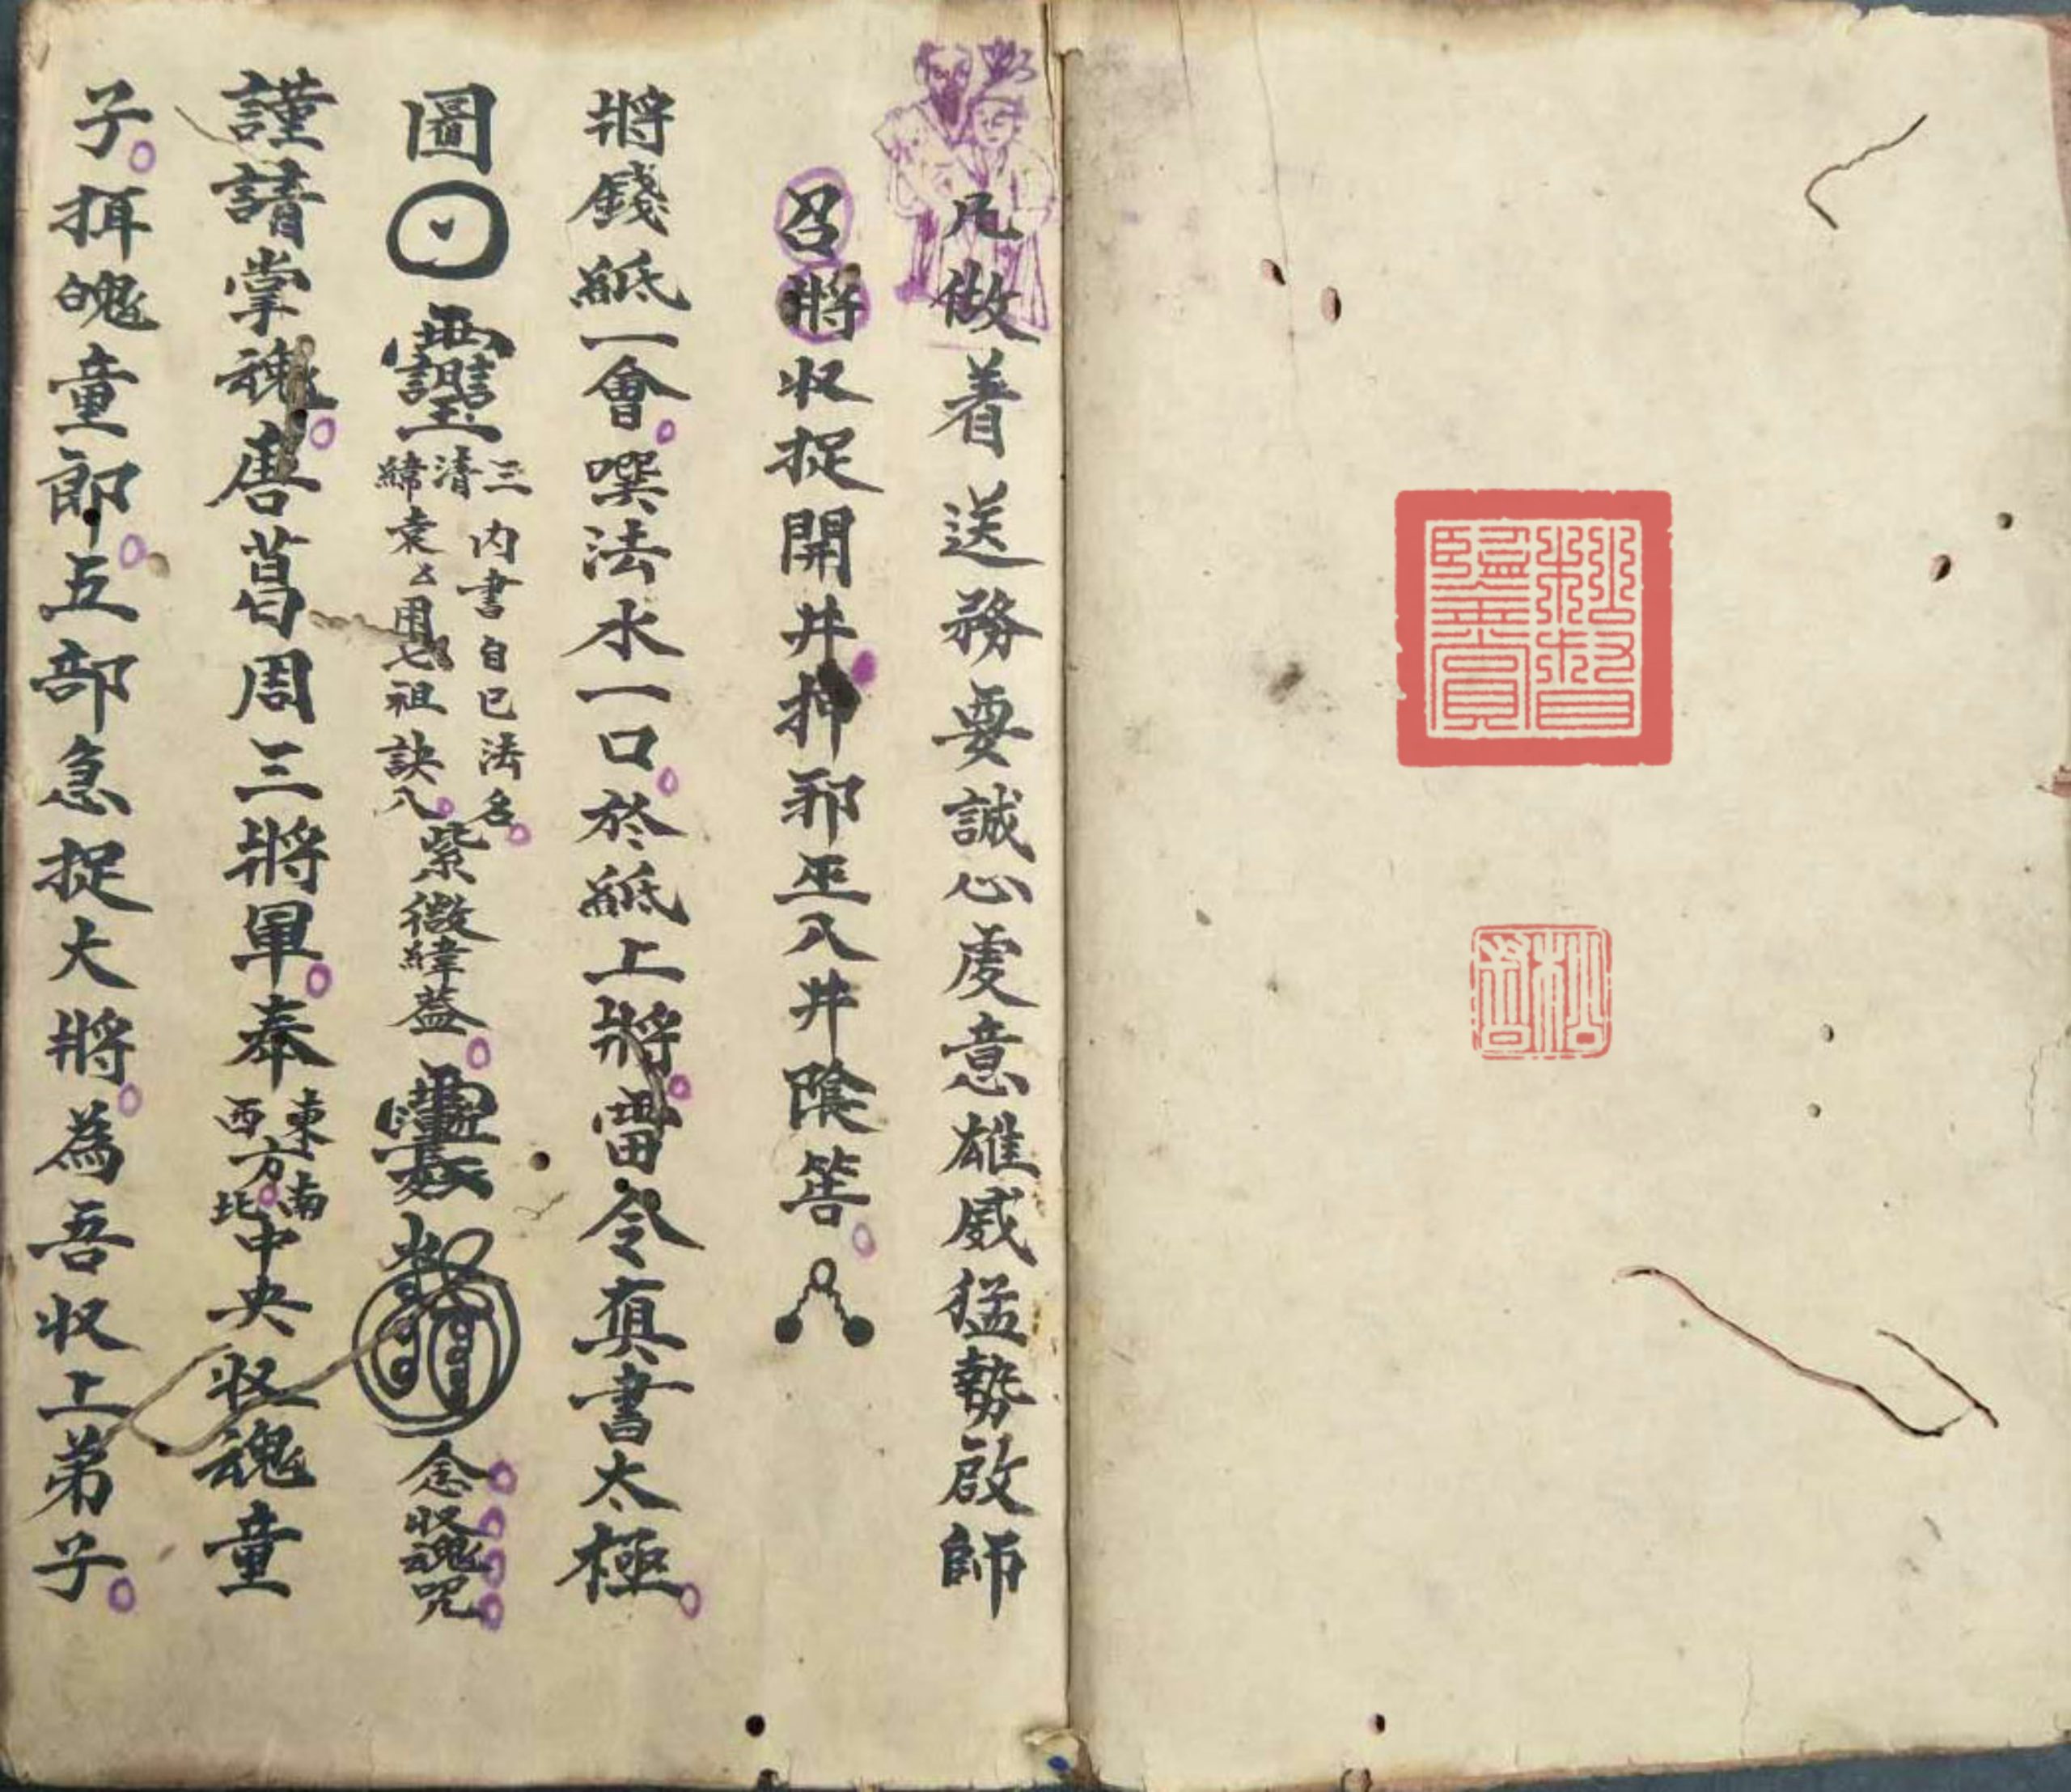 凢做着送務要誠心虔意雄威猛勢啟師
召將収捉開井押邪巫入井陰筶
將錢紙一會噀法水一口於紙上將雷令真書太極
圖
三清諱内書自己法名
用七祖訣八
紫微諱蓋
念収魂咒
謹請掌魂唐葛周三將軍奉東南西北方中央収魂童
子拜魂童郎五部急捉大將為吾収上弟子